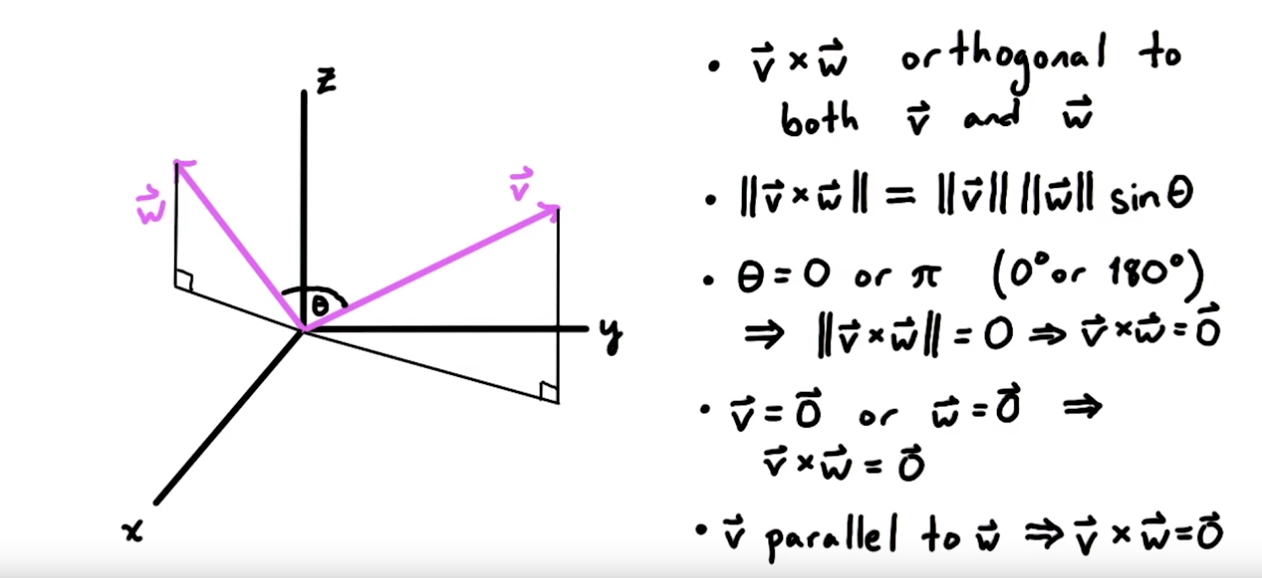 z
w⃗
v⃗
θ
y
x
• v⃗ × w⃗ orthogonal to
both v⃗ and w⃗
• ||v⃗ × w⃗|| = ||v⃗|| ||w⃗|| sin θ
• θ = 0 or π (0° or 180°)
⇒ ||v⃗ × w⃗|| = 0 ⇒ v⃗ × w⃗ = 0⃗
• v⃗ = 0⃗ or w⃗ = 0⃗ ⇒
v⃗ × w⃗ = 0⃗
• v⃗ parallel to w⃗ ⇒ v⃗ × w⃗ = 0⃗